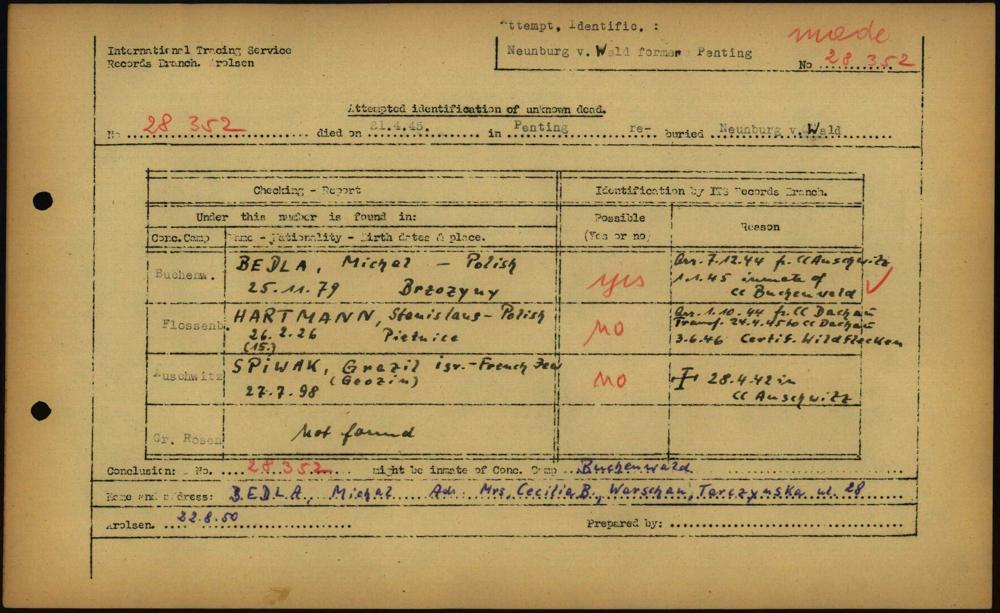 Attempt. Identific. :
made
International Tracing Service
Neunburg v. Wald former Penting
Records Branch. Arolsen
No 28 352
Attempted identification of unknown dead.
No 28 352 died on 21.4.45. in Penting re- buried Neunburg v. Wald
Checking - Report
Identification by ITS Records Branch.
Under this number is found in:
Possible
(Yes or no)
Reason
Conc.Camp
Name - Nationality - Birth dates & place.
Buchenw.
BEDLA, Michal - Polish
25.11.79 Brzozyny
yes
Arr. 7.12.44 fr. CC Auschwitz
1.1.45 inmate of
CC Buchenwald
Flossenb.
HARTMANN, Stanislaus - Polish
26.2.26 Pietnice
(15.)
No
Arr. 1.10.44 fr. CC Dachau
Transf. 24.4.45 to CC Dachau
3.6.46 Certif. Wildflecken
Auschwitz
SPIWAK, Grazil isr. - French Jew
(Geozin)
27.7.98
No
28.4.42 in
CC Auschwitz
Gr. Rosen
Not found
Conclusion: No. 28 352 might be inmate of Conc. Camp Buchenwald
Name and address: BEDLA, Michal Adr. Mrs. Cecilia B., Warschau, Tarczynska ul. 28
Arolsen. 22.8.50
Prepared by: